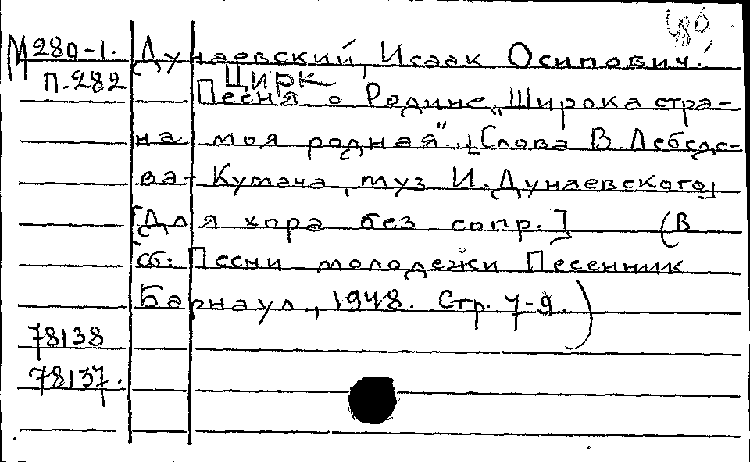 М 280-1. Дунаевский, Исаак Осипович.
П.282 Цирк
Песня о Родине „Широка стра-
на моя родная". [Слова В Лебеде-
ва-Кумача, муз И. Дунаевского]
[Для хора без сопр.] (В
сб: Песни молодежи Песенник
Барнаул, 1948. Стр. 7-9.)
78138
78137.